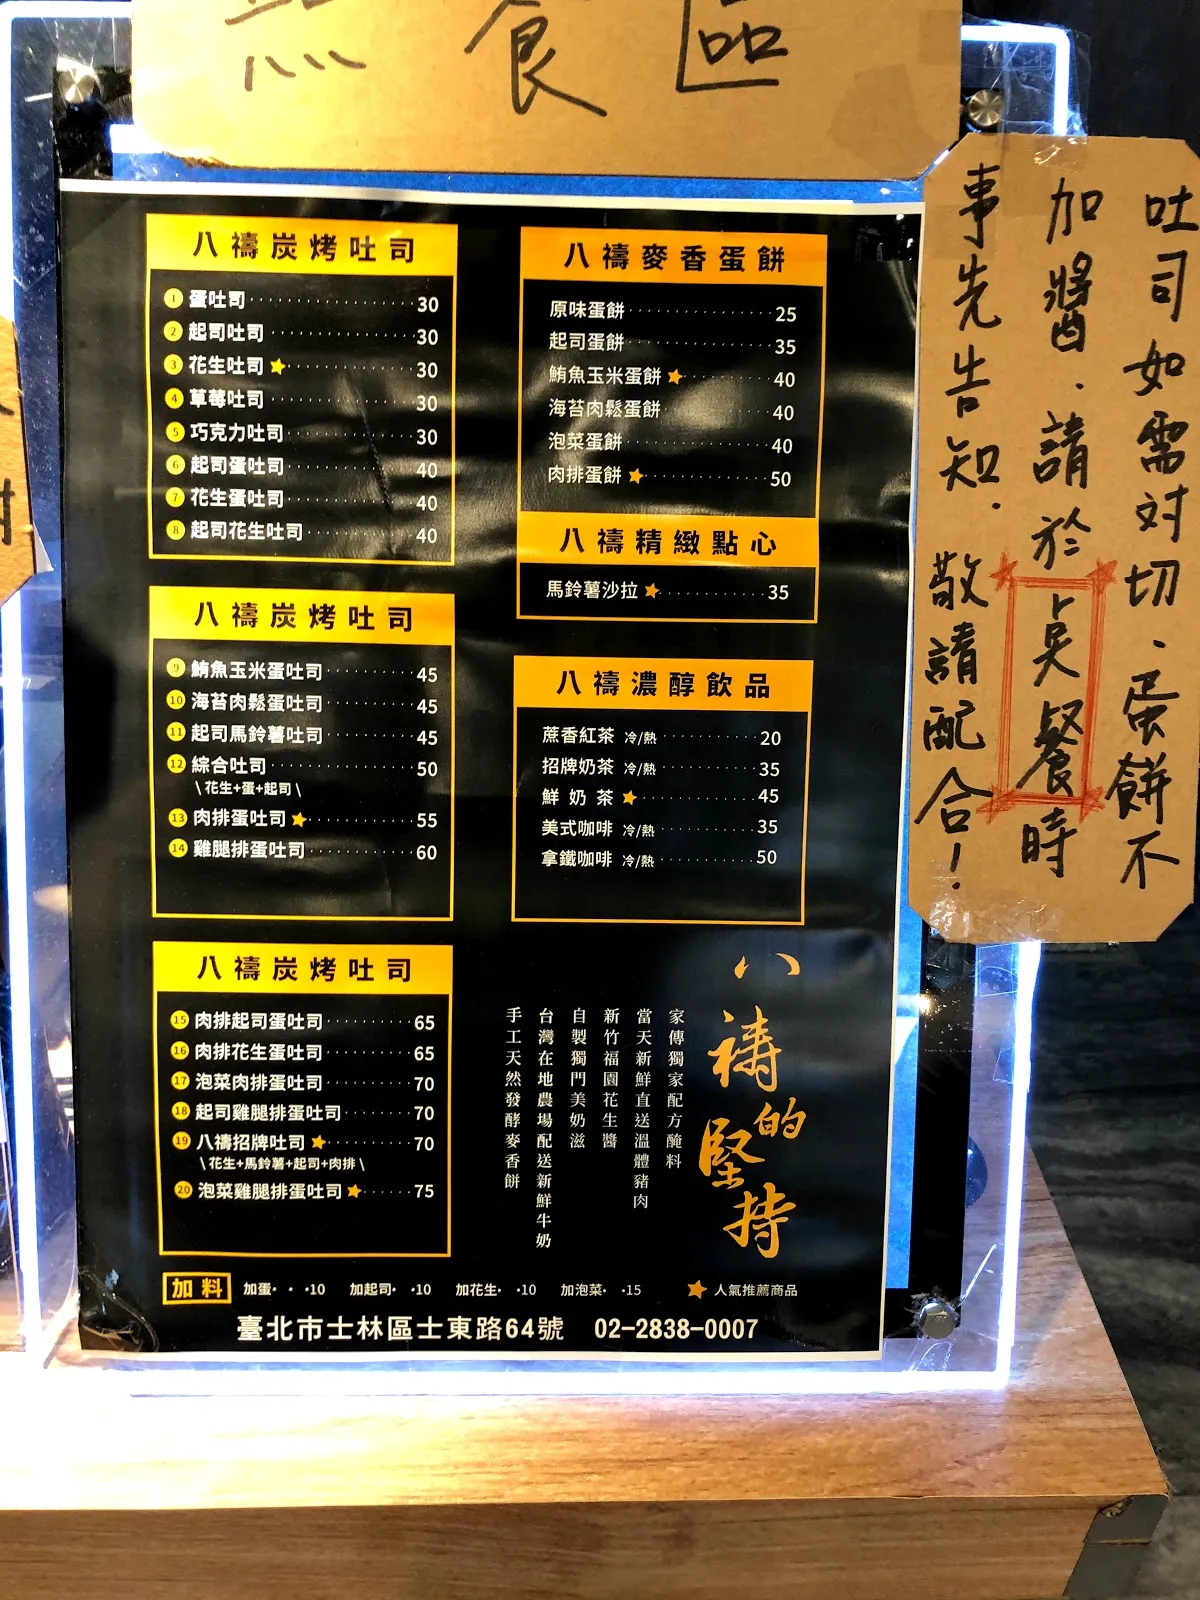 食區
八禱炭烤吐司
1 蛋吐司 30
2 起司吐司 30
3 花生吐司 ★ 30
4 草莓吐司 30
5 巧克力吐司 30
6 起司蛋吐司 40
7 花生蛋吐司 40
8 起司花生吐司 40
八禱炭烤吐司
9 鮪魚玉米蛋吐司 45
10 海苔肉鬆蛋吐司 45
11 起司馬鈴薯吐司 45
12 綜合吐司 50
\ 花生+蛋+起司 \
13 肉排蛋吐司 ★ 55
14 雞腿排蛋吐司 60
八禱炭烤吐司
15 肉排起司蛋吐司 65
16 肉排花生蛋吐司 65
17 泡菜肉排蛋吐司 70
18 起司雞腿排蛋吐司 70
19 八禱招牌吐司 ★ 70
\ 花生+馬鈴薯+起司+肉排 \
20 泡菜雞腿排蛋吐司 ★ 75
八禱麥香蛋餅
原味蛋餅 25
起司蛋餅 35
鮪魚玉米蛋餅 ★ 40
海苔肉鬆蛋餅 40
泡菜蛋餅 40
肉排蛋餅 ★ 50
八禱精緻點心
馬鈴薯沙拉 ★ 35
八禱濃醇飲品
蔗香紅茶 冷/熱 20
招牌奶茶 冷/熱 35
鮮奶茶 ★ 45
美式咖啡 冷/熱 35
拿鐵咖啡 冷/熱 50
八禱的堅持
家傳獨家配方醃料
當天新鮮直送溫體豬肉
新竹福園花生醬
自製獨門美奶滋
台灣在地農場配送新鮮牛奶
手工天然發酵麥香餅
加料 加蛋··10 加起司··10 加花生··10 加泡菜··15 ★ 人氣推薦商品
臺北市士林區士東路64號 02-2838-0007
吐司如需対切、蛋餅不
加醬、請於點餐時
事先告知.敬請配合!